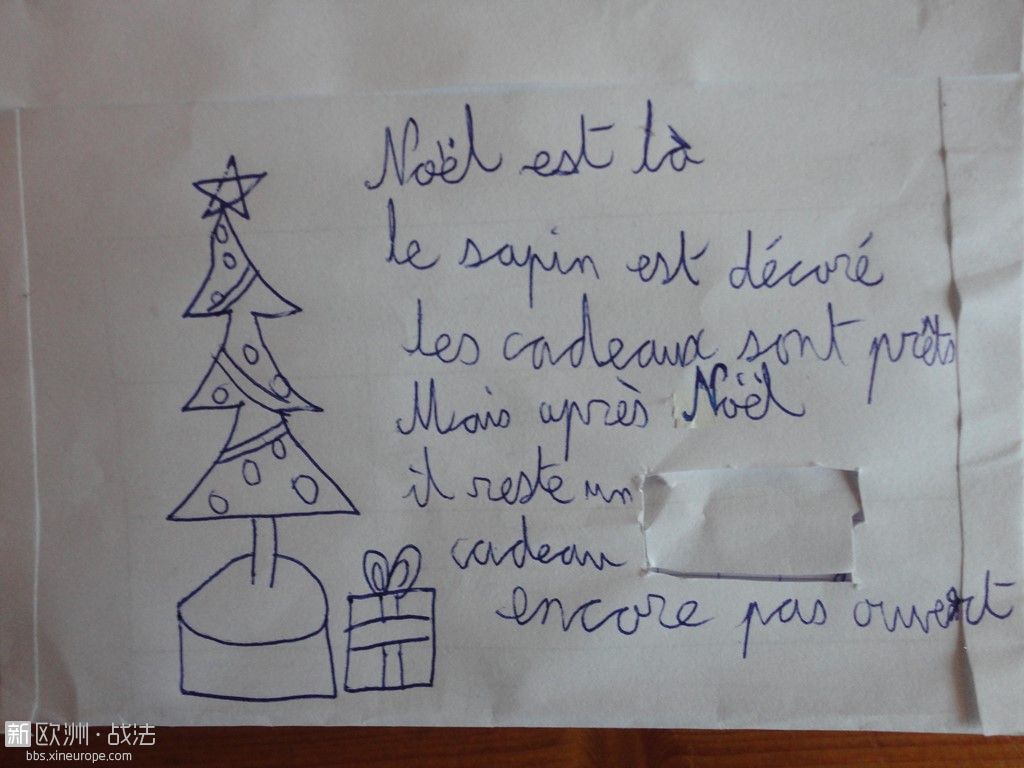 Noël est là
le sapin est décoré
les cadeaux sont prêts
Mais après Noël
il reste un
cadeau
encore pas ouvert
新欧洲·战法
bbs.xineurope.com